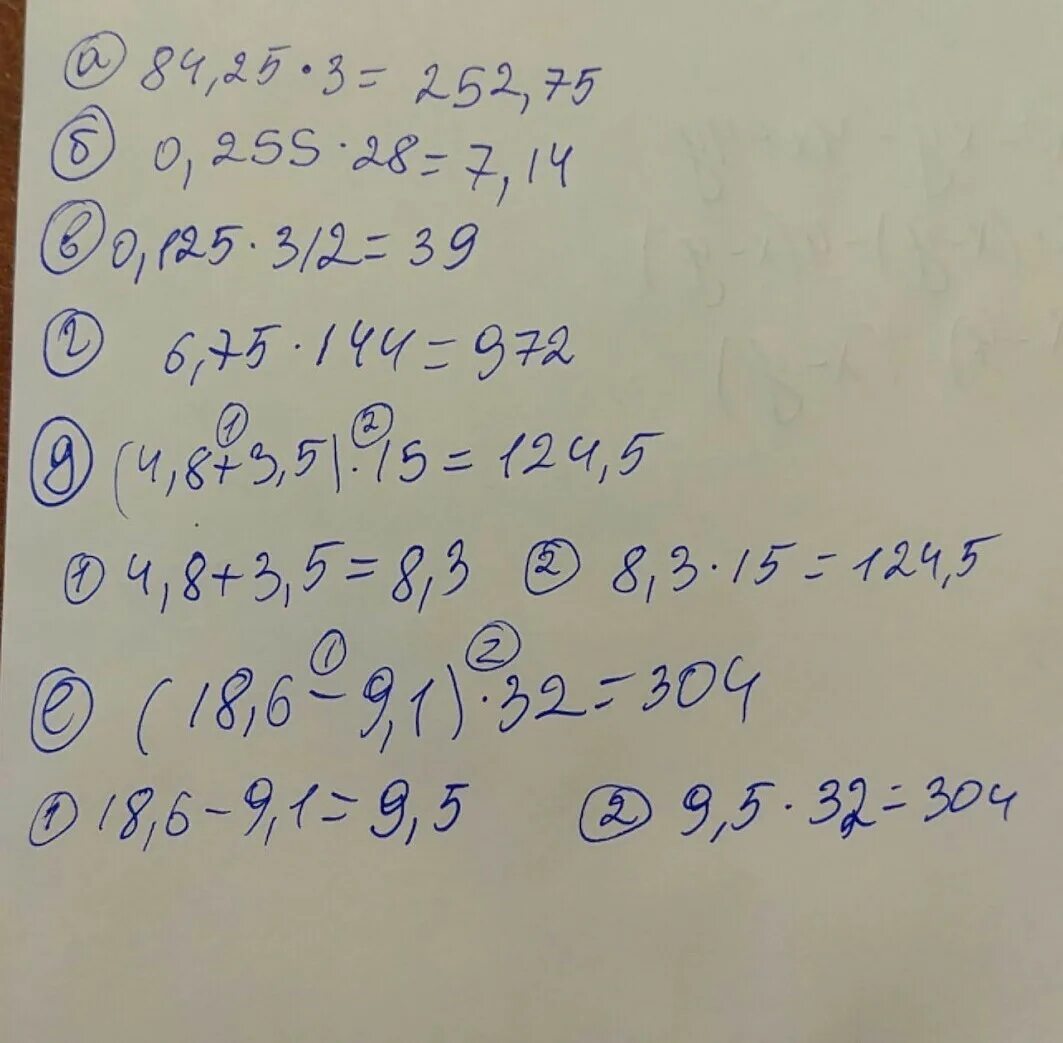 а 84,25 · 3 = 252,75
б 0,255 · 28 = 7,14
в 0,125 · 312 = 39
г 6,75 · 144 = 972
1 2
д (4,8 + 3,5) · 15 = 124,5
1 4,8 + 3,5 = 8,3 2 8,3 · 15 = 124,5
1 2
е (18,6 − 9,1) · 32 = 304
1 18,6 − 9,1 = 9,5 2 9,5 · 32 = 304